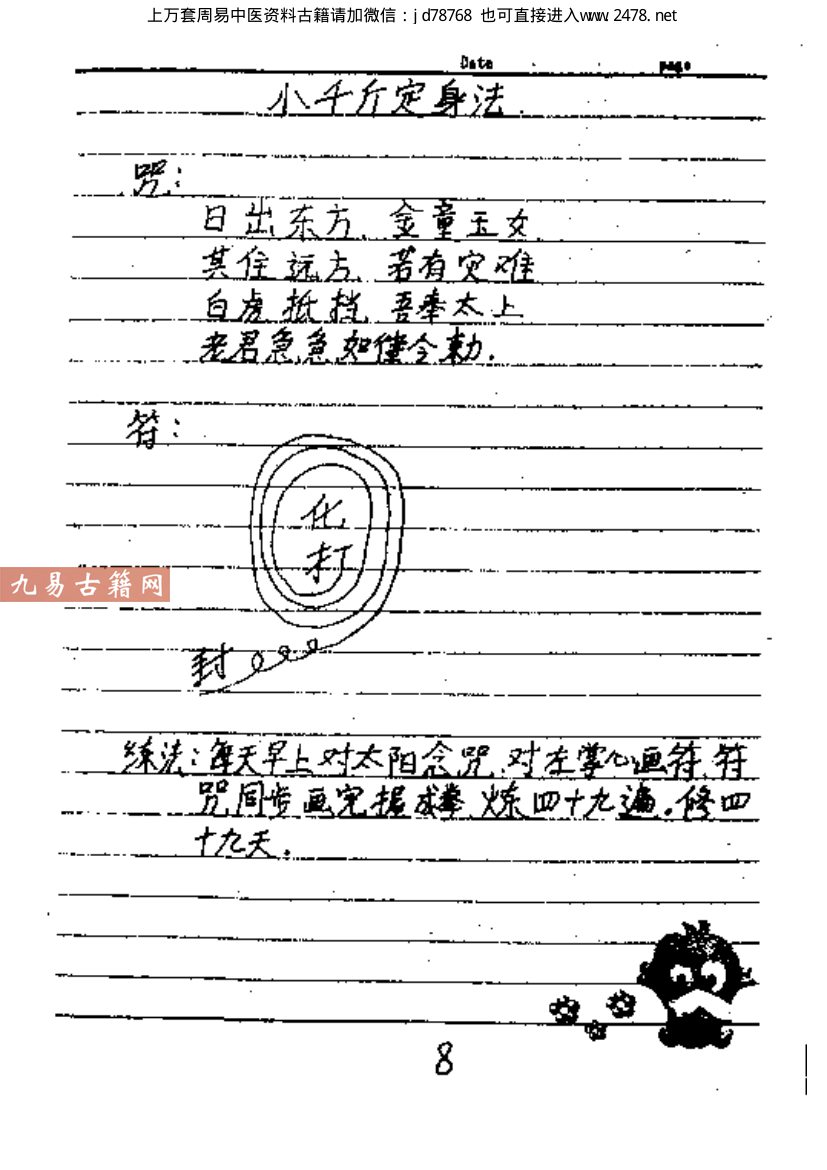 上万套周易中医资料古籍请加微信：jd78768 也可直接进入www.2478.net
Date page
小千斤定身法
咒：
日出东方、金童玉女
其住远方、若有灾难
白虎抵挡、吾奉太上
老君急急如律令勅．
符：
化
打
九易古籍网
封
练法：每天早上对太阳念咒、对左掌心画符、符
咒同步画完握成拳、炼四十九遍。修四
十九天．
8